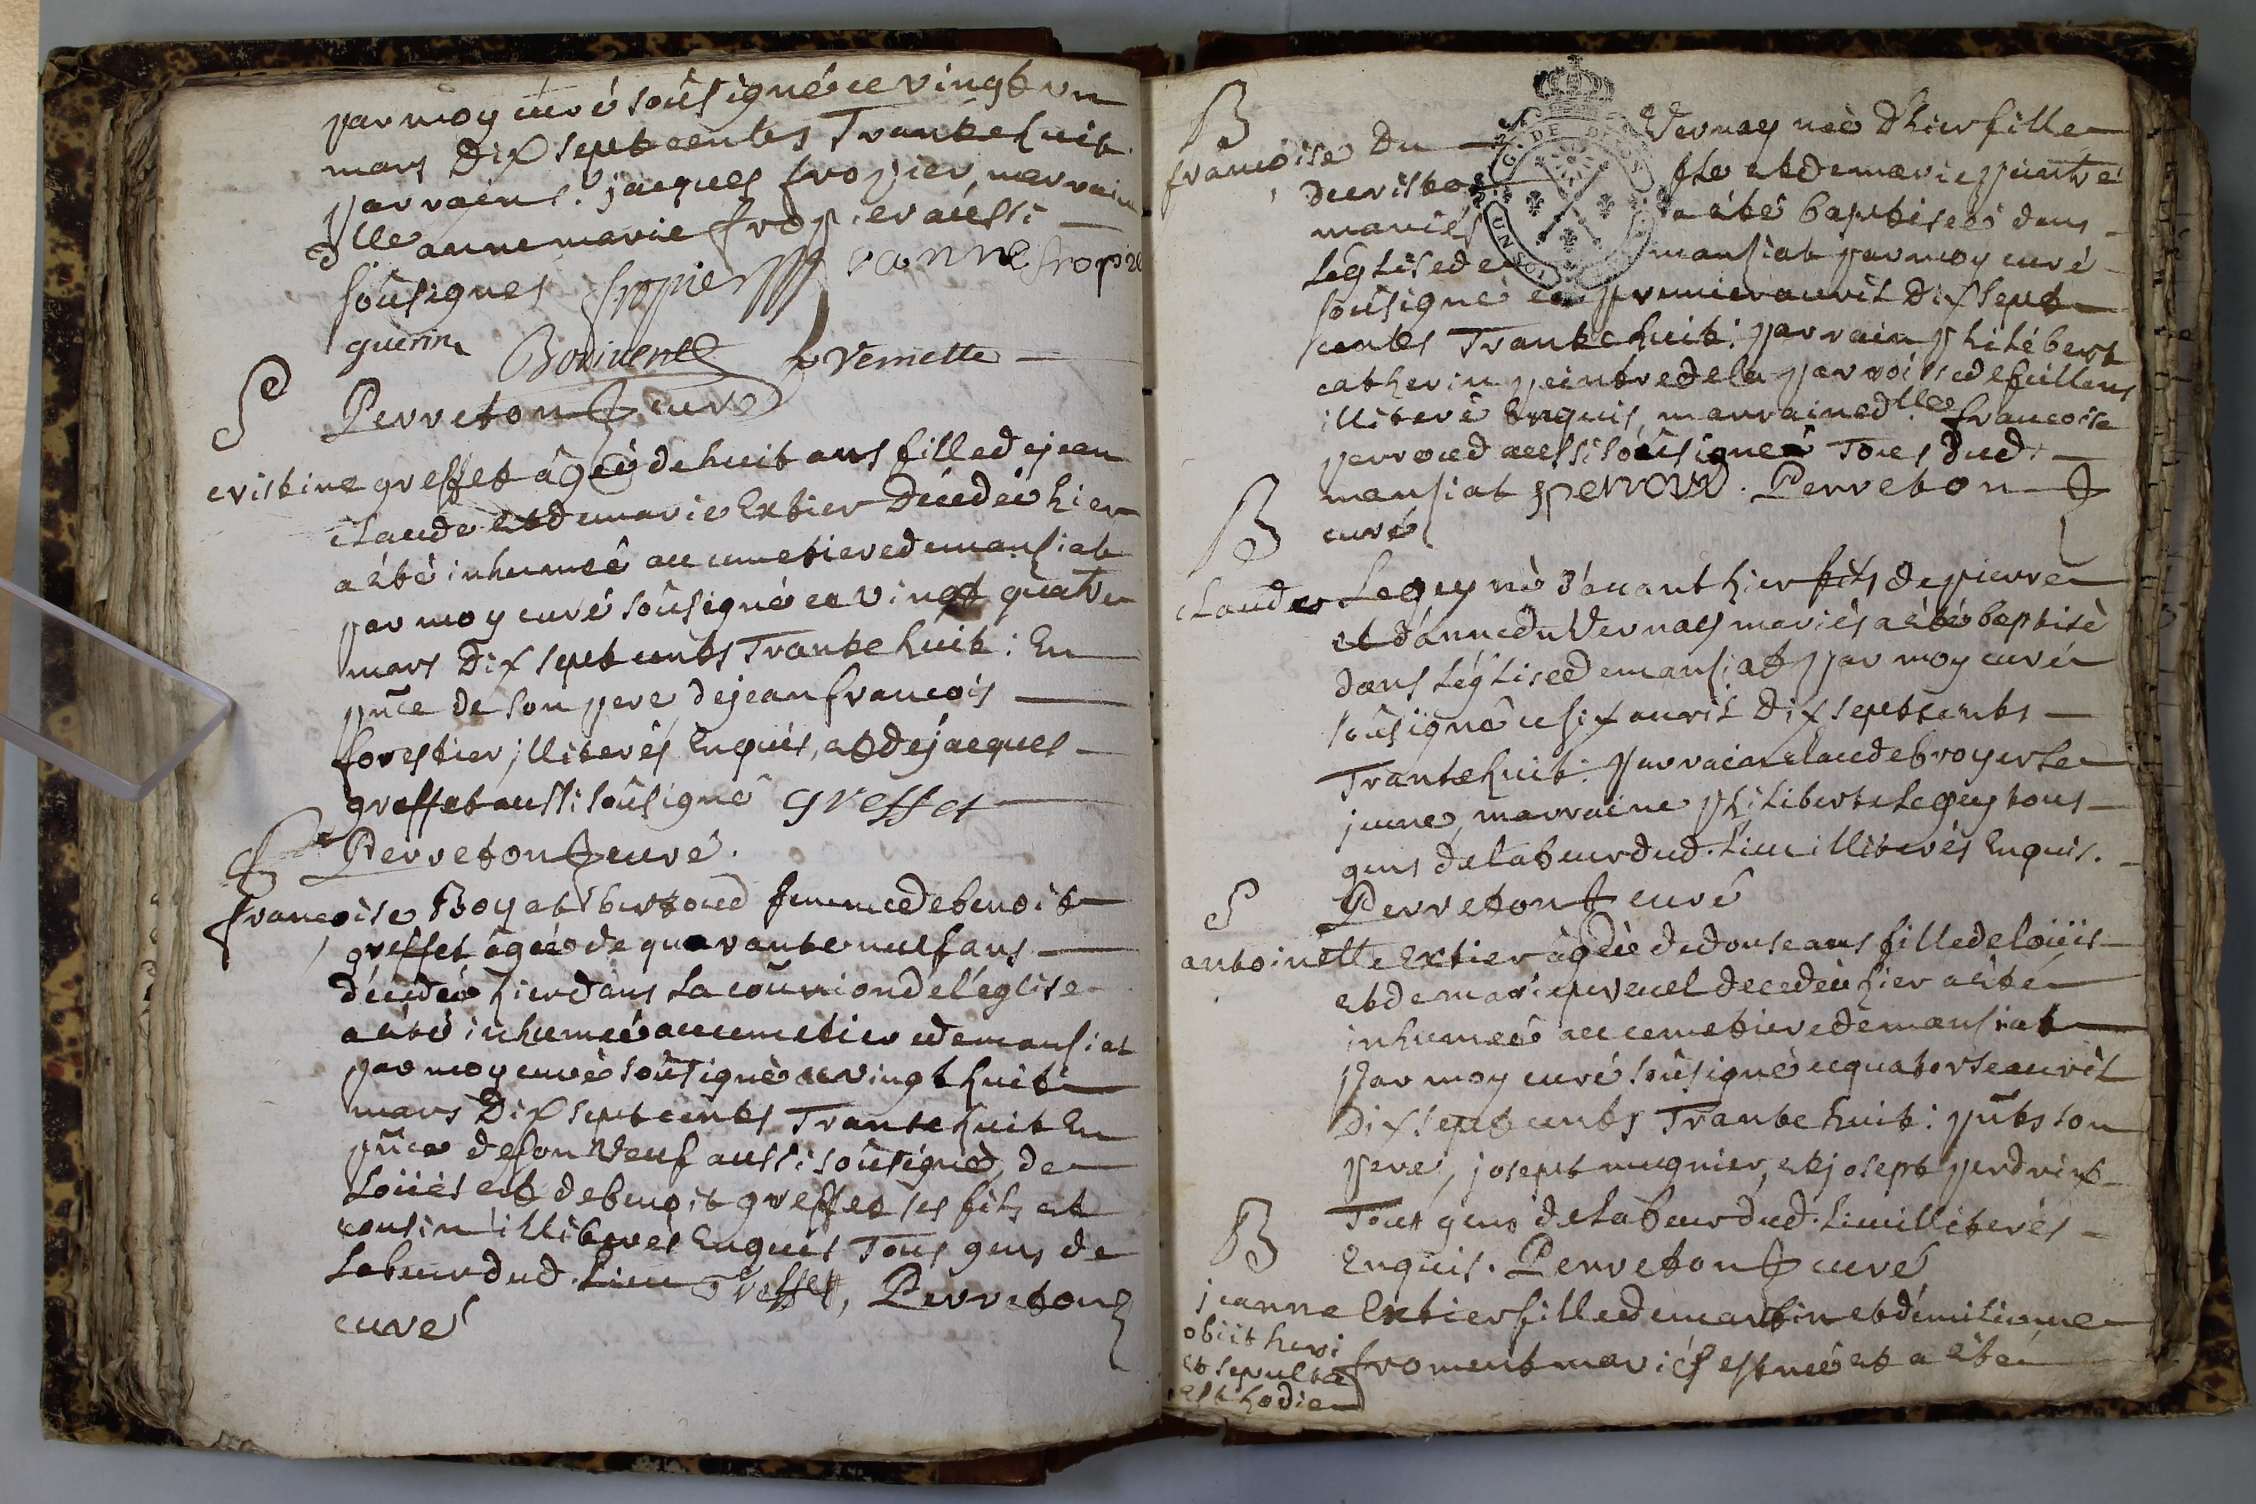 par moy curé soûsigné ce vingt un
mars Dix sept centes Trante huit
parrains. jacques fropier, marraine
dlle anne marie fropier aussi
soûsignes fropier anne fropier
guerin Boniuent Vernette
S Perreton curé
cristine greffet âgeé de huit ans fille de jean
claude et de marie Extier Décedeé hier
a été inhumeé au cemetiere de mansiat
par moy curé soûsigné ce vingt quatre
mars Dix sept cents Trante huit : En
pñce de son pere de jean francois
forestier, illiterés Enquis, et de jacques
greffet aussi soûsigné greffet
Perreton curé.
françoise Boyat bertoud femme de benoit
greffet ageé de quarante neuf ans
décedeé hier dans la com̃union de l'eglise
a été inhumeé au cemetiere de mansiat
par moy curé soûsigné ce vingt huit
mars Dix sept cents Trante huit En
pñce de son Veuf aussi soûsigné, de
Loüis et de benoit greffet ses fils et
cousin illiteres Enquis Tous gens de
labeur dud. lieu Greffet, Perreton
curé
B
françoise Du Vernay neé d'hier fille
de cristo fle et de marie peintre
mariés a été baptiseé dans
l'eglise de mansiat par moy curé
soûsigné ce premier auril Dix sept
centes Trante huit : parrain philébert
catherin peintre de la parroisse de
illiteré Enquis, marraine dlle françoise
perroud aussi soûsigneé Tous dud.
mansiat perroud. Perreton
curé
B
claude Leguy né d'auant hier fils de pierre
et d'anne du Vernay mariés a été baptisé
dans l'églisse de mansiat par moy curé
soûsigné ce six auril Dix sept cents
Trante huit : parrain claude broyer le
jeune, marraine philiberte Leguy tous
gens de labeur dud. lieu illiterés Enquis.
S Perreton curé
antoinette Extier âgeé de douse ans fille de loüis
et de marie preuel decedeé hier a été
inhumeé au cemetiere de mansiat
par moy curé soûsigné ce quatorse auril
Dix sept cents Trante huit : pñts son
pere, josept mugnier, et josept perdrix
Tous gens de labeur dud. lieu illiterés
B Enquis. Perreton curé
jeanne Extier fille de martin et d'emilienne
froment mariés est neé et a été
obiit heri
et sepulta
est hodie